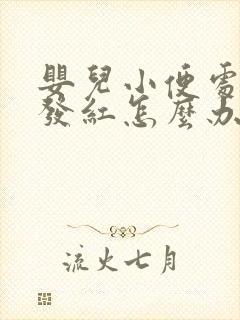 嬰兒小便處
發紅怎麼办
流火七月